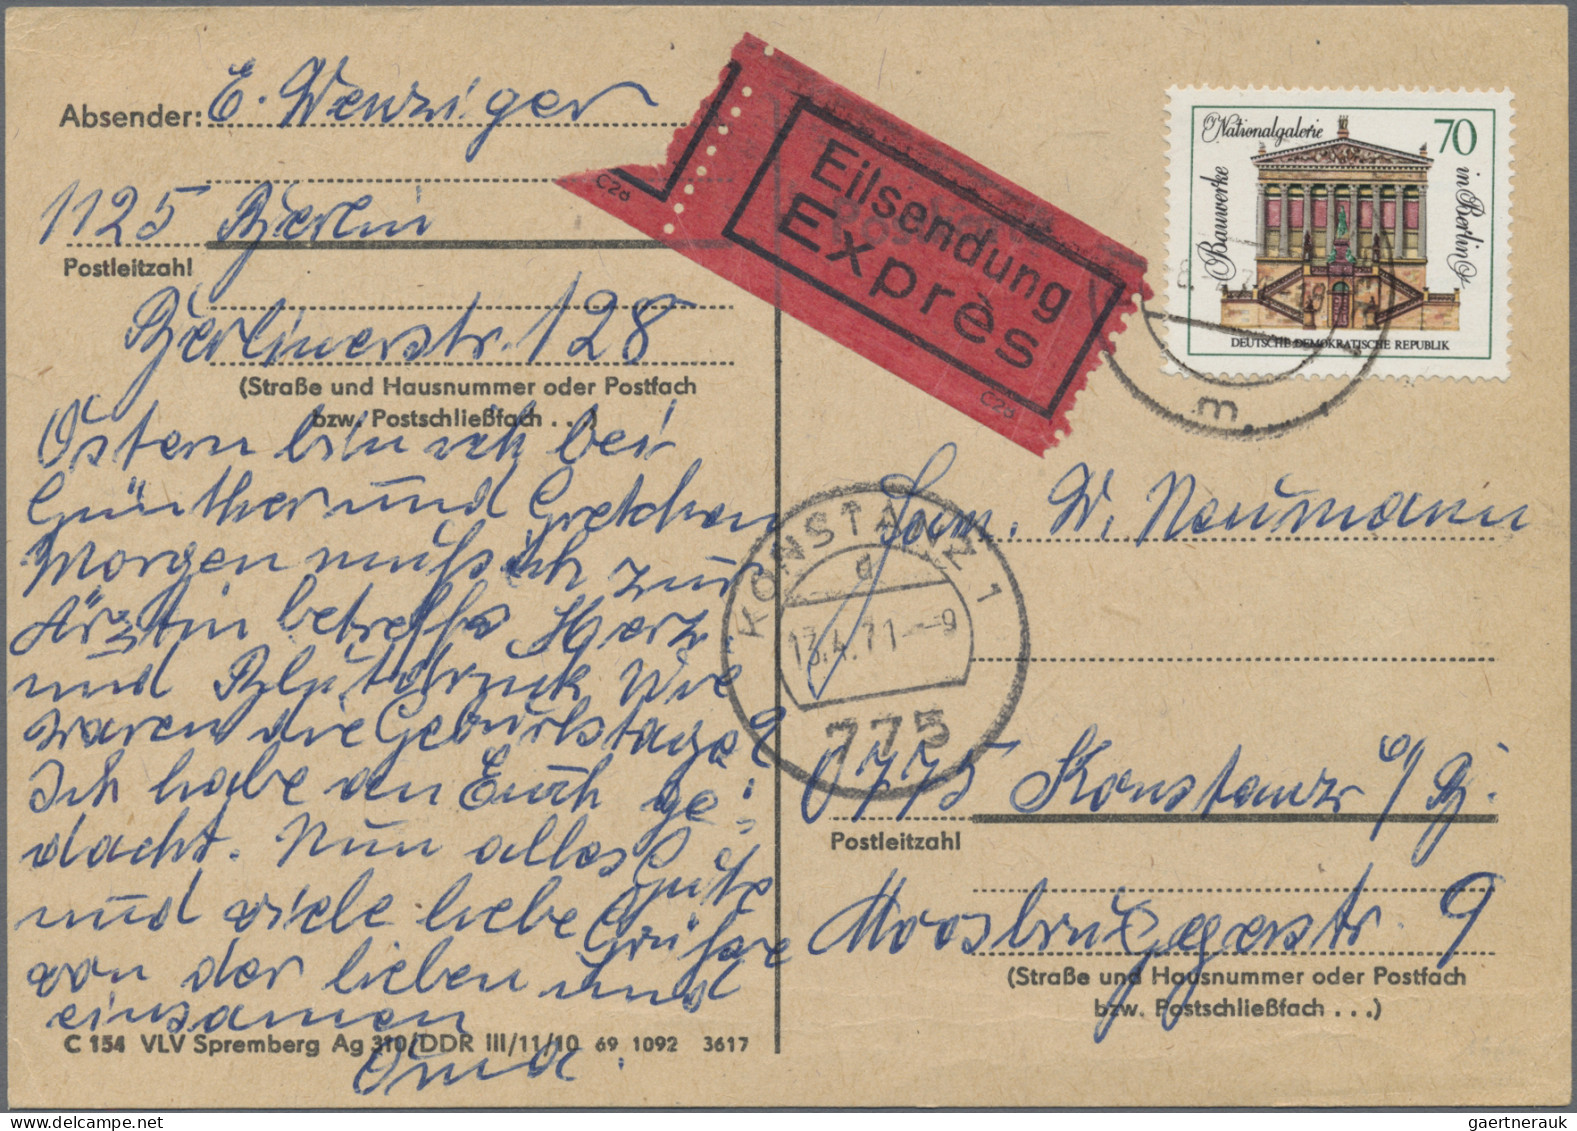 Absender: E. Wenziger
1125 Berlin
Postleitzahl
Berlinerstr. 128
(Straße und Hausnummer oder Postfach
bzw. Postschließfach . . .)
Ostern bin ich bei
Günther und Gretchen
Morgen muß ich zur
Ärztin betreffs Herz
und Blutdruck Wie
waren die Geburtstage?
Ich habe an Euch ge-
dacht. Nun alles Gute
und viele liebe Grüße
von der lieben und
einsamen
Oma.
C 154 VLV Spremberg Ag 310/DDR III/11/10 69 1092 3617
C26
Eilsendung
Exprès
C26
Nationalgalerie
70
Bauwerke
in Berlin
DEUTSCHE DEMOKRATISCHE REPUBLIK
m
KONSTANZ 1
d
13.4.71--9
775
Fam. W. Neumann
0775 Konstanz
Postleitzahl
Moosbruggerstr. 9
(Straße und Hausnummer oder Postfach
bzw. Postschließfach . . .)
gaertnerauk